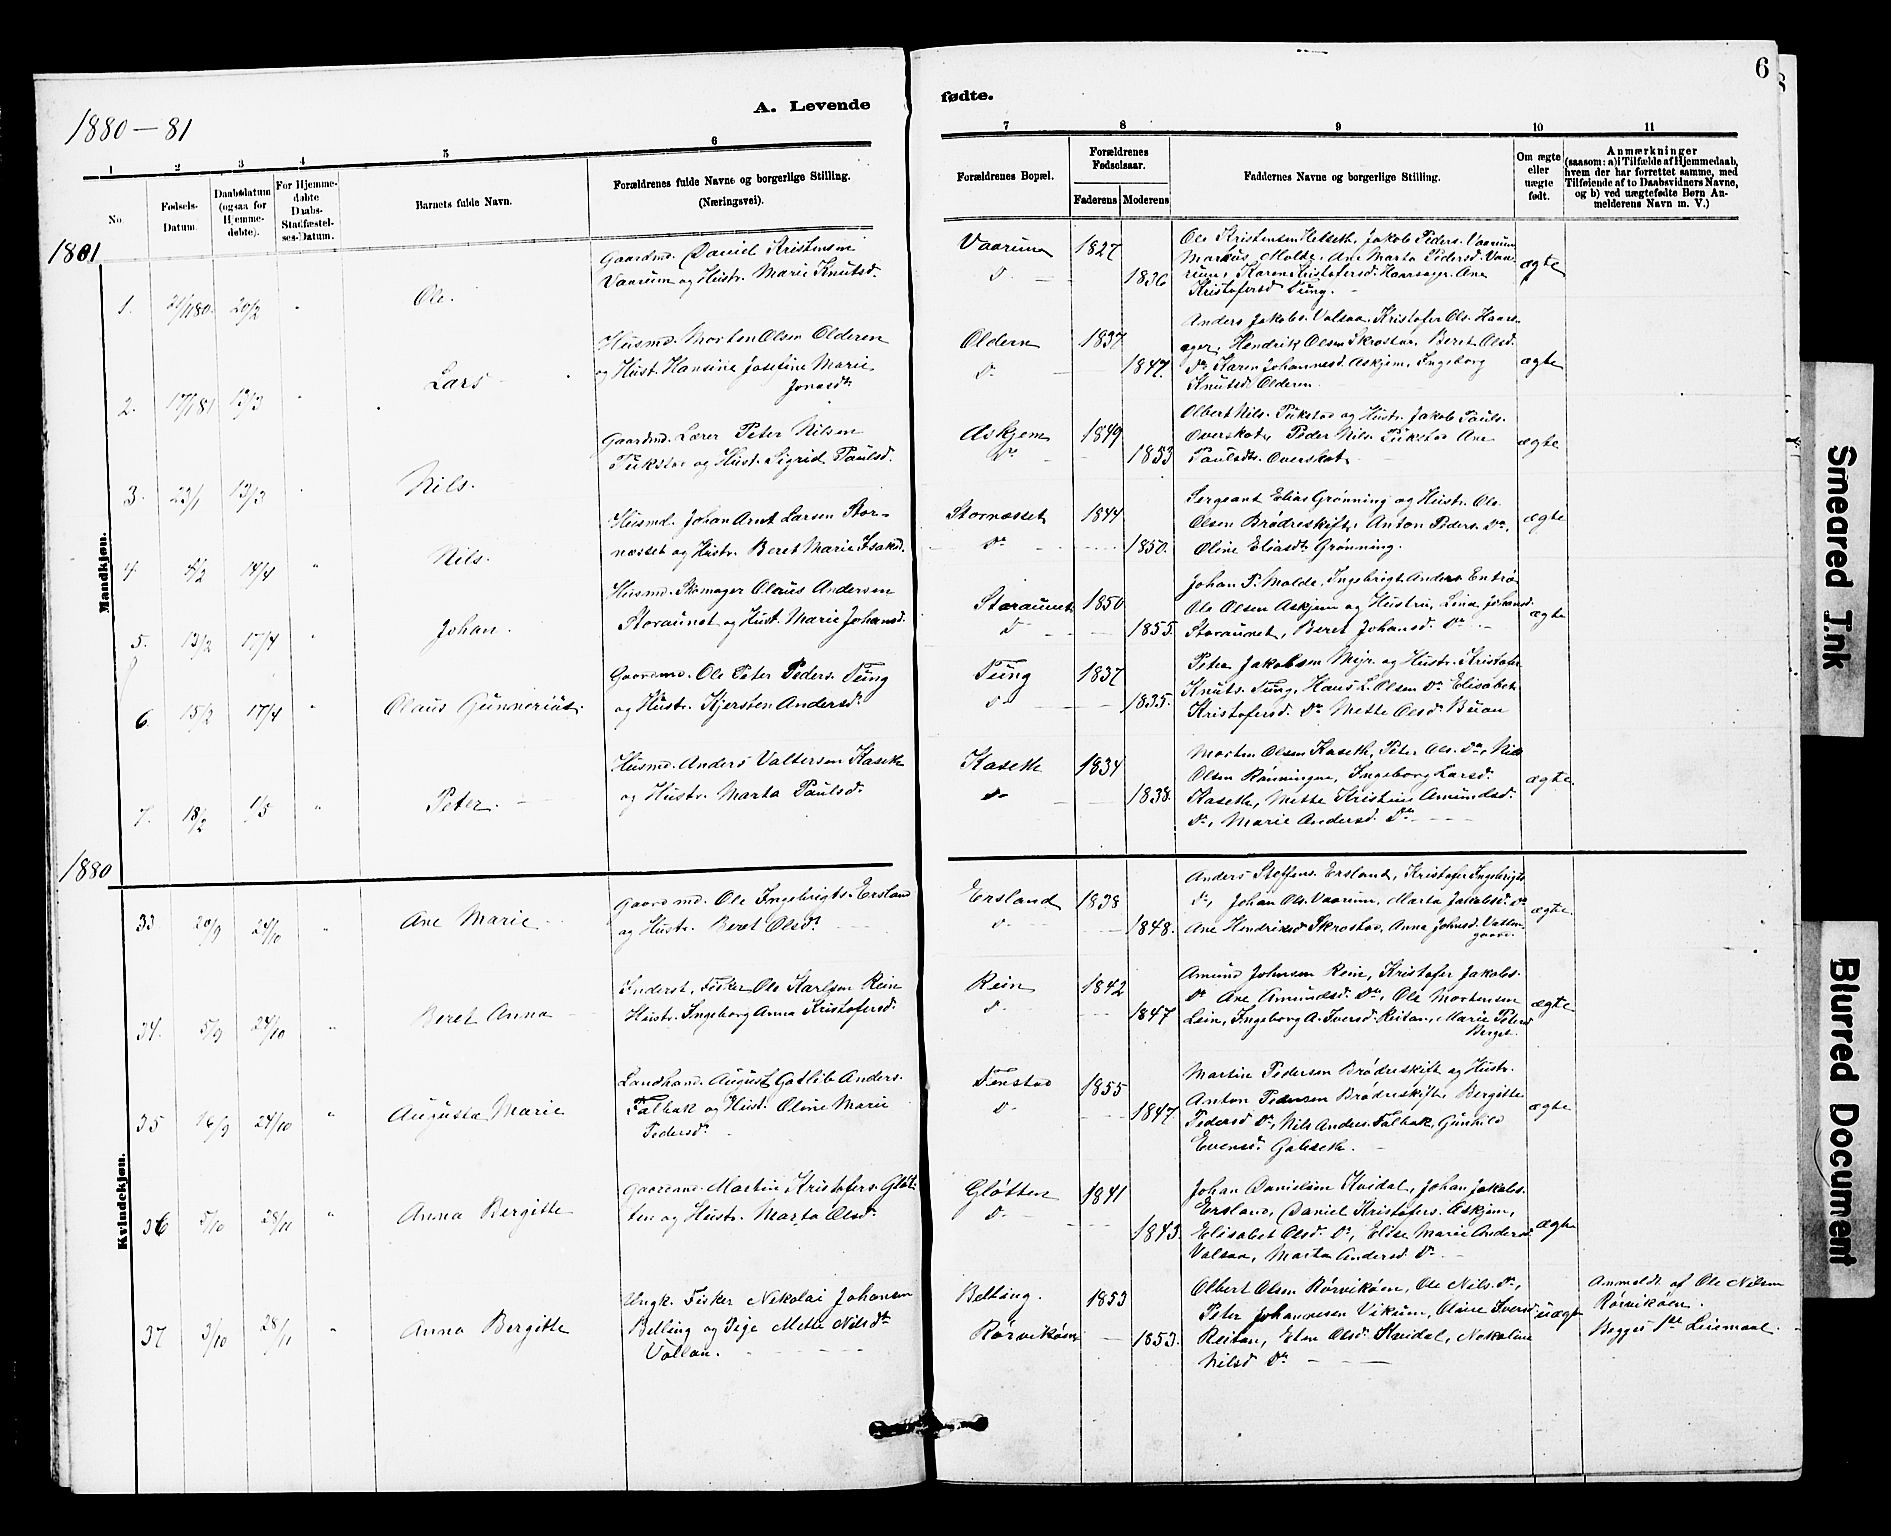 6
1880-81
A. Levende
fødte.
1
2
3
4
5
6
7
8
9
10
11
No.
Fødsels-
Datum.
Daabsdatum
(ogsaa for
Hjemme-
døbte).
For Hjemme-
døbte
Daabs-
Stadfæstel-
ses-Datum.
Barnets fulde Navn.
Forældrenes fulde Navne og borgerlige Stilling.
(Næringsvei).
Forældrenes Bopæl.
Forældrenes
Fødselsaar.
Faderens
Moderens
Faddernes Navne og borgerlige Stilling.
Om ægte
eller
uægte
født.
Anmærkninger
(saasom: a) i Tilfælde af Hjemmedaab,
hvem der har forrettet samme, med
Tilføiende af to Daabsvidners Navne,
og b) ved uægtefødte Børn An-
melderens Navn m. V.)
1881
Mandkjøn.
1. 20/2 Ole.
Gaardmd. Daniel Kristensen
Vaarum og Hustr. Marie Knutsd.
Vaarum 1827
D° 1836
Ole Kristensen Helseth, Jakob Peders. Vaarum
Markus Molde, Ane Marta Pedersd. Vaa-
rum, Karen Kristofersd. Haarsager, Ane
Kristofersd. Tung.
ægte
2. 17/1 81 13/3 Lars
Husmd. Morten Olsen Olderen
og Hust. Hansine Josefine Marie
Jonasdt.
Oldern 1837
D° 1847.
Anders Jakobs. Valsaa, Kristofer Ols. Haars-
ager, Hendrik Olsen Skrostad, Beret Olsd.
D°, Karen Johannesd. Askjem, Ingeborg
Knutsd. Olderen
ægte
3. 23/1 13/3 Nils.
Gaardmd. Lærer Peter Nilsen
og Hust. Sigrid Paulsd.
Askjem 1849
D° 1853
Olbert Nils. og Hustr. Jakob Pauls.
Overskot, Peder Nils. Ane
Paulsdt. Overskot
ægte
4. 14/4 Nils.
Husmd. Johan Arnt Larsen Stor-
næsset og Hustr. Beret Marie Isakd.
Stornæsset 1844
D° 1850.
Sergeant Elias Grønning og Hustr. Ole
Olsen Brødreskift, Anton Peders. D°,
Oline Eliasdt. Grønning.
ægte
5. 13/2 17/4 Johan.
Husmd. Skomager Olaus Andersen
Storaunet og Hust. Marie Johansd.
Storaunet 1850
D° 1855.
Johan P. Molde, Ingebrigt Anders. Entrø
Ole Olsen Askjem og Hustru, Lina Johansd.
Storaunet, Beret Johansd. D°
ægte
6 15/2 17/4 Olaus Gunnerius.
Gaardmd. Ole Peter Peders. Tung
og Hustr. Kjersten Andersd.
Tung 1837
D° 1835.
Peter Jakobsen Myr og Hustr. Kristofer
Knuts. Tung, Hans L. Olsen D° Elisabet
Kristofersd. D° Mette Olsd. Buan
7. 18/2 1/5 Peter.
Husmd. Anders Valtersen Kaseth
og Hustr. Marta Paulsd.
Kaseth 1834
D° 1838.
Morten Olsen Kaseth, Peter Ols. D°, Nils
Olsen Rønningen, Ingeborg Larsd.
Kaseth, Mette Kristine Amundsd.
D°, Marie Andersd. D°
ægte
1880
Kvindekjøn.
33 20/9 24/10 Ane Marie
Gaardmd. Ole Ingebrigts. Ersland
og Hustr. Beret Olsdt
Ersland 1838
D° 1848.
Anders Steffens. Ersland, Kristofer Ingebrigts
D°, Johan Ols. Vaarum, Marta Jakobsd. D°
Ane Hendriksd. Skrostad, Anna Johnsd. Vatten-
gaard.
ægte.
34. 5/9 24/10 Beret Anna
Inderst, Fisker Ole Karlsen Rein
Hustr. Ingeborg Anna Kristofersd.
Rein 1842
D° 1847
Amund Johnsen Rein, Kristofer Jakobs.
D° Ane Amundsd. D°, Ole Mortensen
Lein, Ingeborg A. Iversd. Reitan, Marie Petersd
Berget.
ægte
35 16/9 24/10 Augusta Marie
Landhand. August Gotlib Anders.
Falbak og Hust. Oline Marie
Pedersdt.
Fenstad 1855
D° 1847.
Martin Pedersen Brødreskift og Hustr.
Anton Pedersen Brødreskift, Bergitte
Pedersd D°, Nils Anders. Falbak, Gunhild
Evensdt.
ægte
36 5/10 28/11 Anna Bergitte
Gaardmd. Martin Kristofers. Gløt-
ten og Hustr. Marta Olsdt.
Gløtten 1841
D° 1843.
Johan Danielsen Hvidal, Johan Jakobs.
Ersland, Daniel Kristofers. Askjem,
Elisabet Olsd. D°, Elise Marie Andersd.
Valsaa, Marta Andersd. D°
ægte
37 3/10 28/11 Anna Bergitte
Ungk. Fisker Nekolai Johansen
Belling og Pige Mette Nilsdt.
Vollan.
Belling. 1853
Rørvikøien 1853.
Olbert Olsen Rørvikøien, Ole Nils. D°,
Peter Johannesen Vikum, Oline Iversd.
Reitan, Elen Olsd. Hvidal, Nekoline
Nilsd D°
uægte
Anmeldt af Ole Nilsen
Rørvikøien.
Begges 1ste Leiermaal.
Smeared Ink
Blurred Document